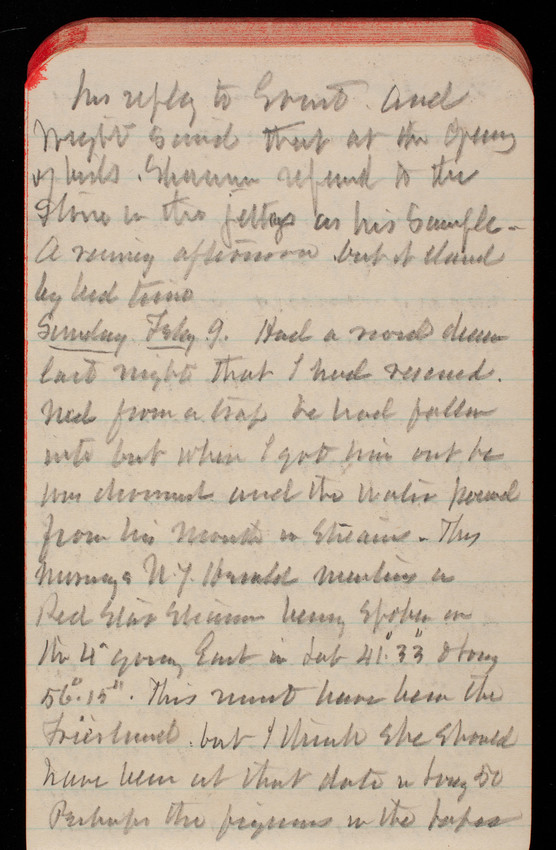 his reply to Grant and
Wright said that at the opening
of bids. Shannon refered to the
Stone in the jettys as his Sample -
A rainy afternoon but it cleard
by bed time
Sunday Feby 9. Had a dream
last night that I had rescued
Ned from a trap he had fallen
into but when I got him out he
was drowned and the water poured
from his mouth in streams. This
mornings N.Y. Herald mentions a
Red Star Steamer being spoken on
the 4" going East in Lat 41°.33" & Long
56°.15". This must have been the
Friesland but I think she should
have been at that date in Long 50
Perhaps the figures in the papers